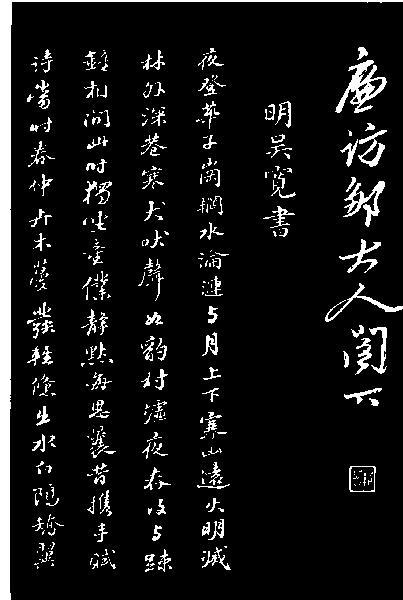 廉访鄒大人閣下
明吳寬書
夜登華子崗輞水淪漣与月上下寒山遠火明滅
林外深巷寒犬吠聲如豹村墟夜舂復与疎
鐘相間此时獨坐童僕靜默每思曩昔携手賦
诗當时春仲卉木蔓發輕鯈出水白鷗矯翼